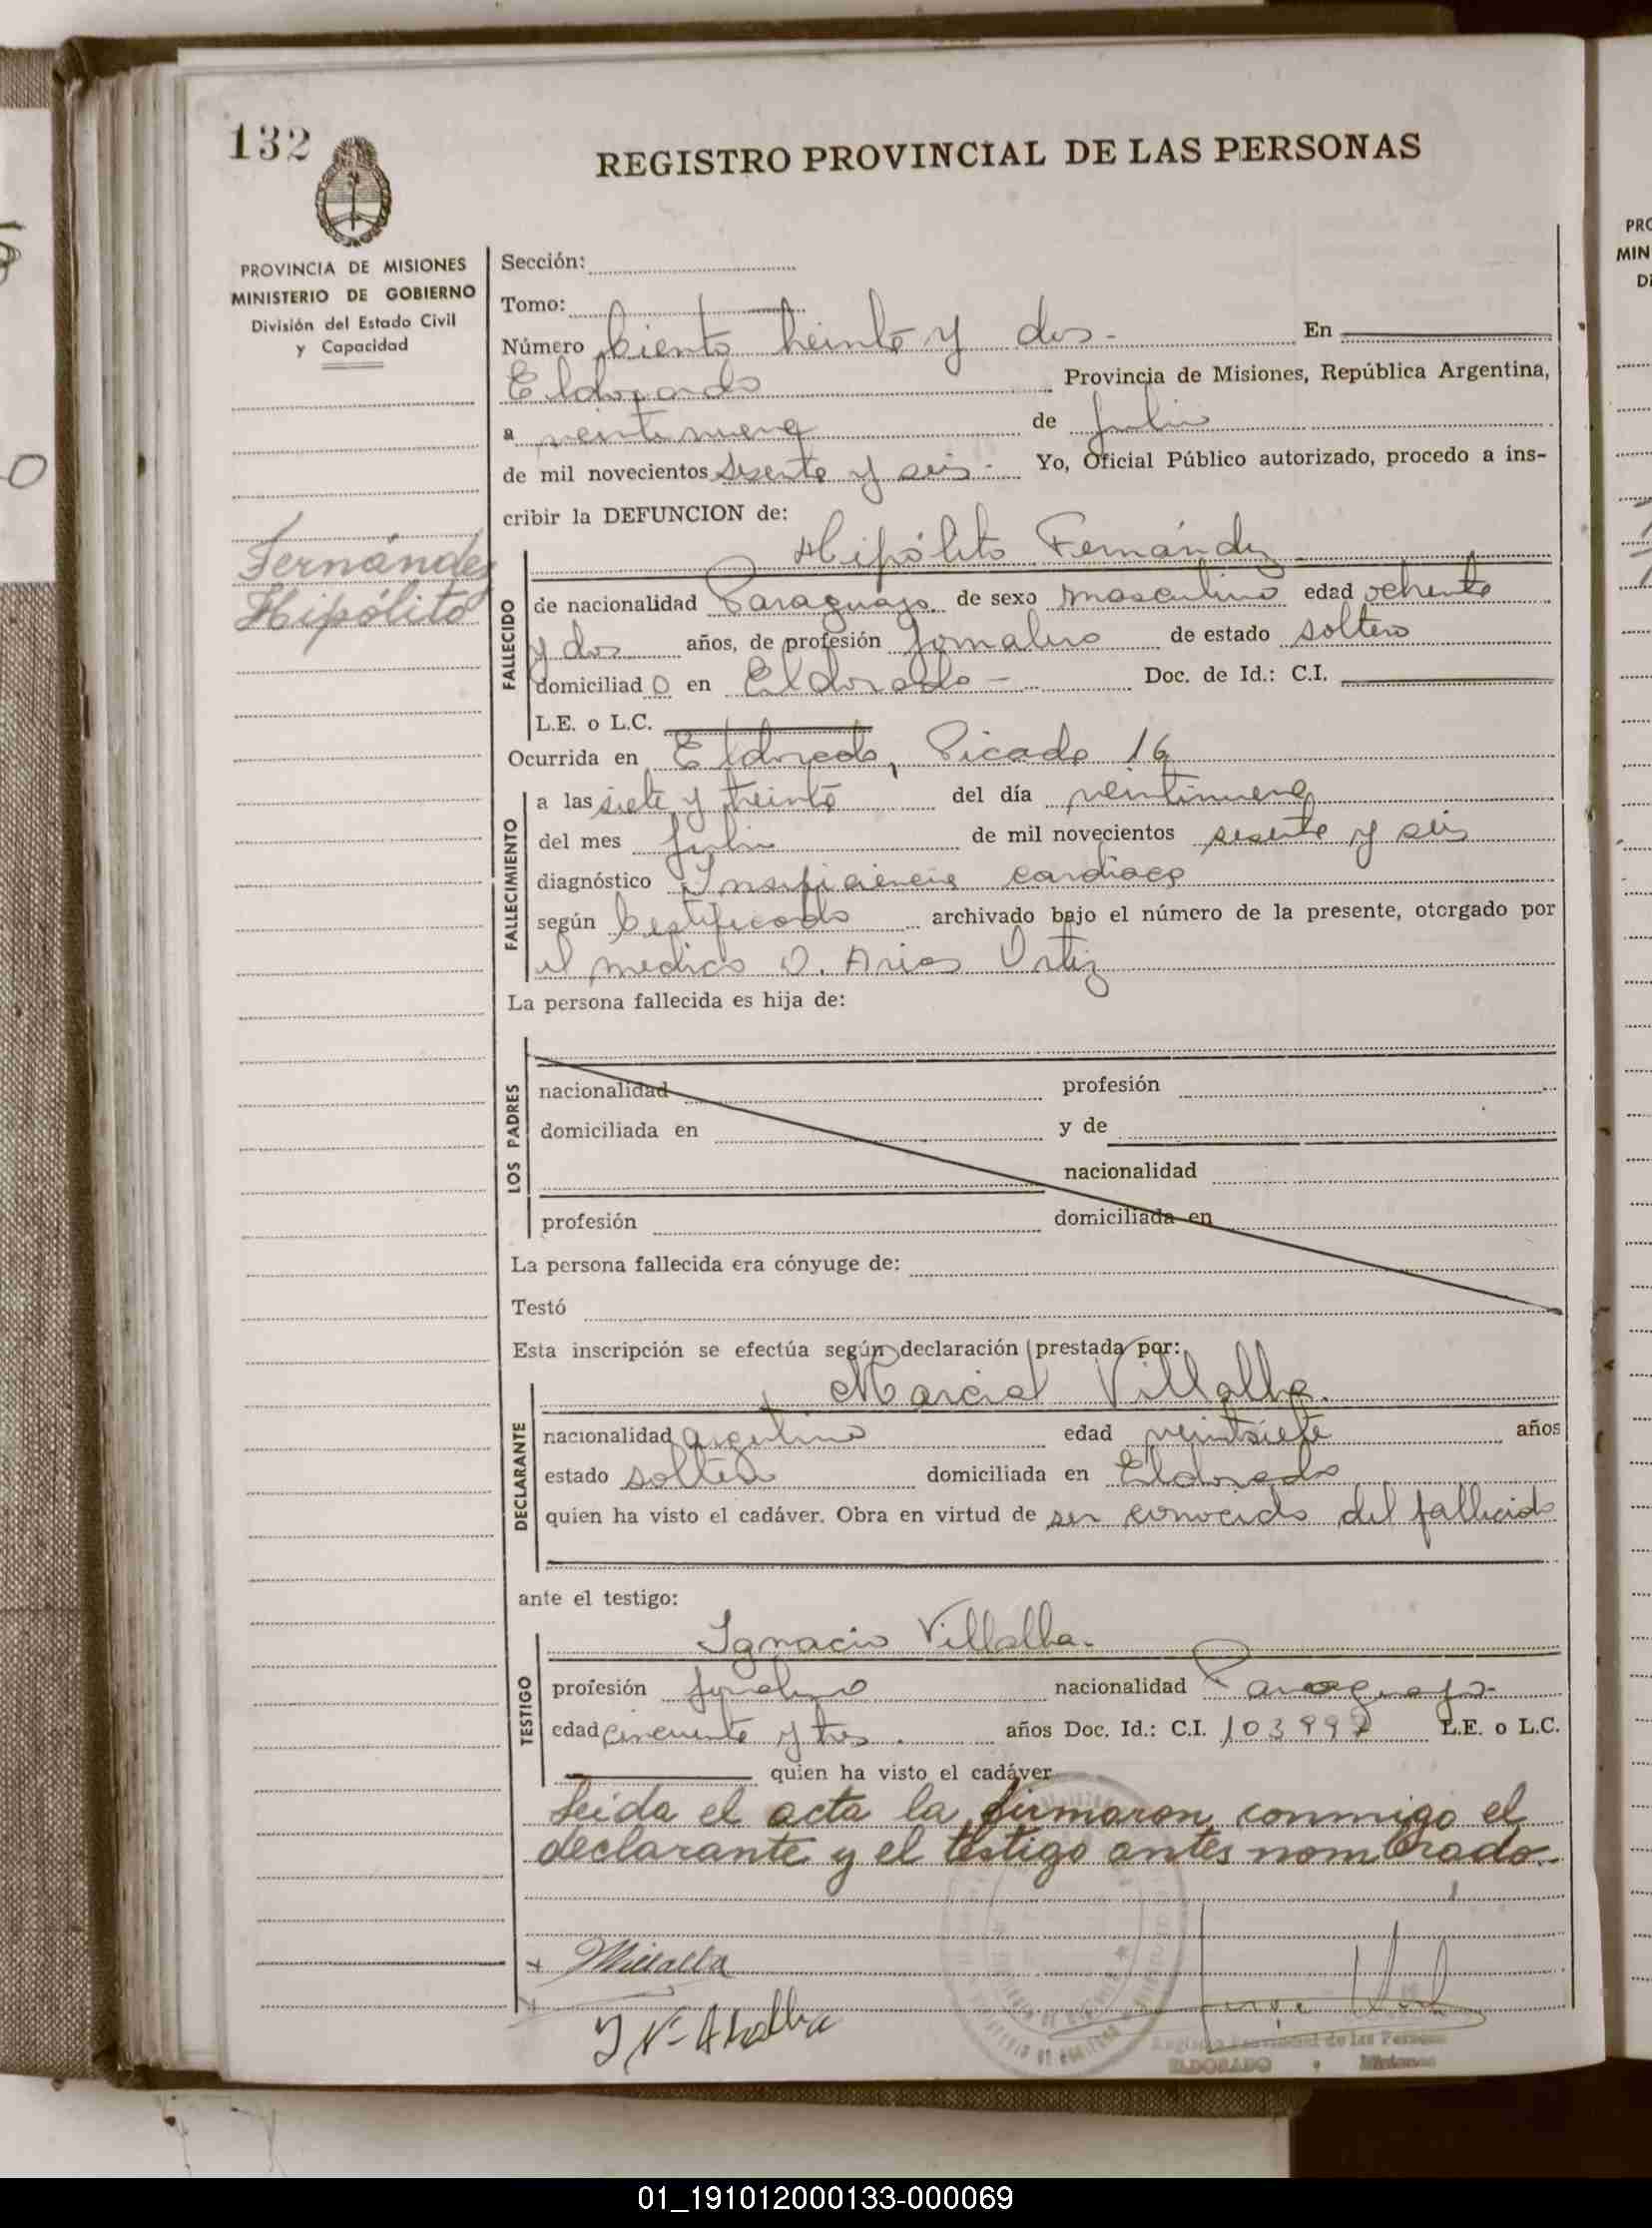 132
REGISTRO PROVINCIAL DE LAS PERSONAS
PROVINCIA DE MISIONES
MINISTERIO DE GOBIERNO
División del Estado Civil
y Capacidad
Fernández
Hipólito
Sección:
Tomo:
Número Ciento treinta y dos - En
Eldorado Provincia de Misiones, República Argentina,
a veintinueve de julio
de mil novecientos sesenta y seis - Yo, Oficial Público autorizado, procedo a ins-
cribir la DEFUNCION de:
Hipólito Fernández
FALLECIDO
de nacionalidad Paraguayo de sexo masculino edad ochenta
y dos años, de profesión Jornalero de estado soltero
domiciliado en Eldorado - Doc. de Id.: C.I.
L.E. o L.C.
Ocurrida en Eldorado, Picada 16
FALLECIMIENTO
a las siete y treinta del día veintinueve
del mes julio de mil novecientos sesenta y seis
diagnóstico Insuficiencia cardiaca
según Certificado archivado bajo el número de la presente, otorgado por
el medico O. Arias Ortiz
La persona fallecida es hija de:
LOS PADRES
nacionalidad profesión
domiciliada en y de
nacionalidad
profesión domiciliada en
La persona fallecida era cónyuge de:
Testó
Esta inscripción se efectúa según declaración prestada por:
Marcial Villalba.
DECLARANTE
nacionalidad argentino edad veintisiete años
estado soltero domiciliada en Eldorado
quien ha visto el cadáver. Obra en virtud de ser conocido del fallecido
ante el testigo:
Ignacio Villalba.
TESTIGO
profesión jornalero nacionalidad Paraguayo
edad cincuenta y tres. años Doc. Id.: C.I. 103997 L.E. o L.C.
quien ha visto el cadáver
Leida el acta la firmaron conmigo el
declarante y el testigo antes nombrado.
Registro Provincial de las Personas
ELDORADO Misiones
01_191012000133-000069